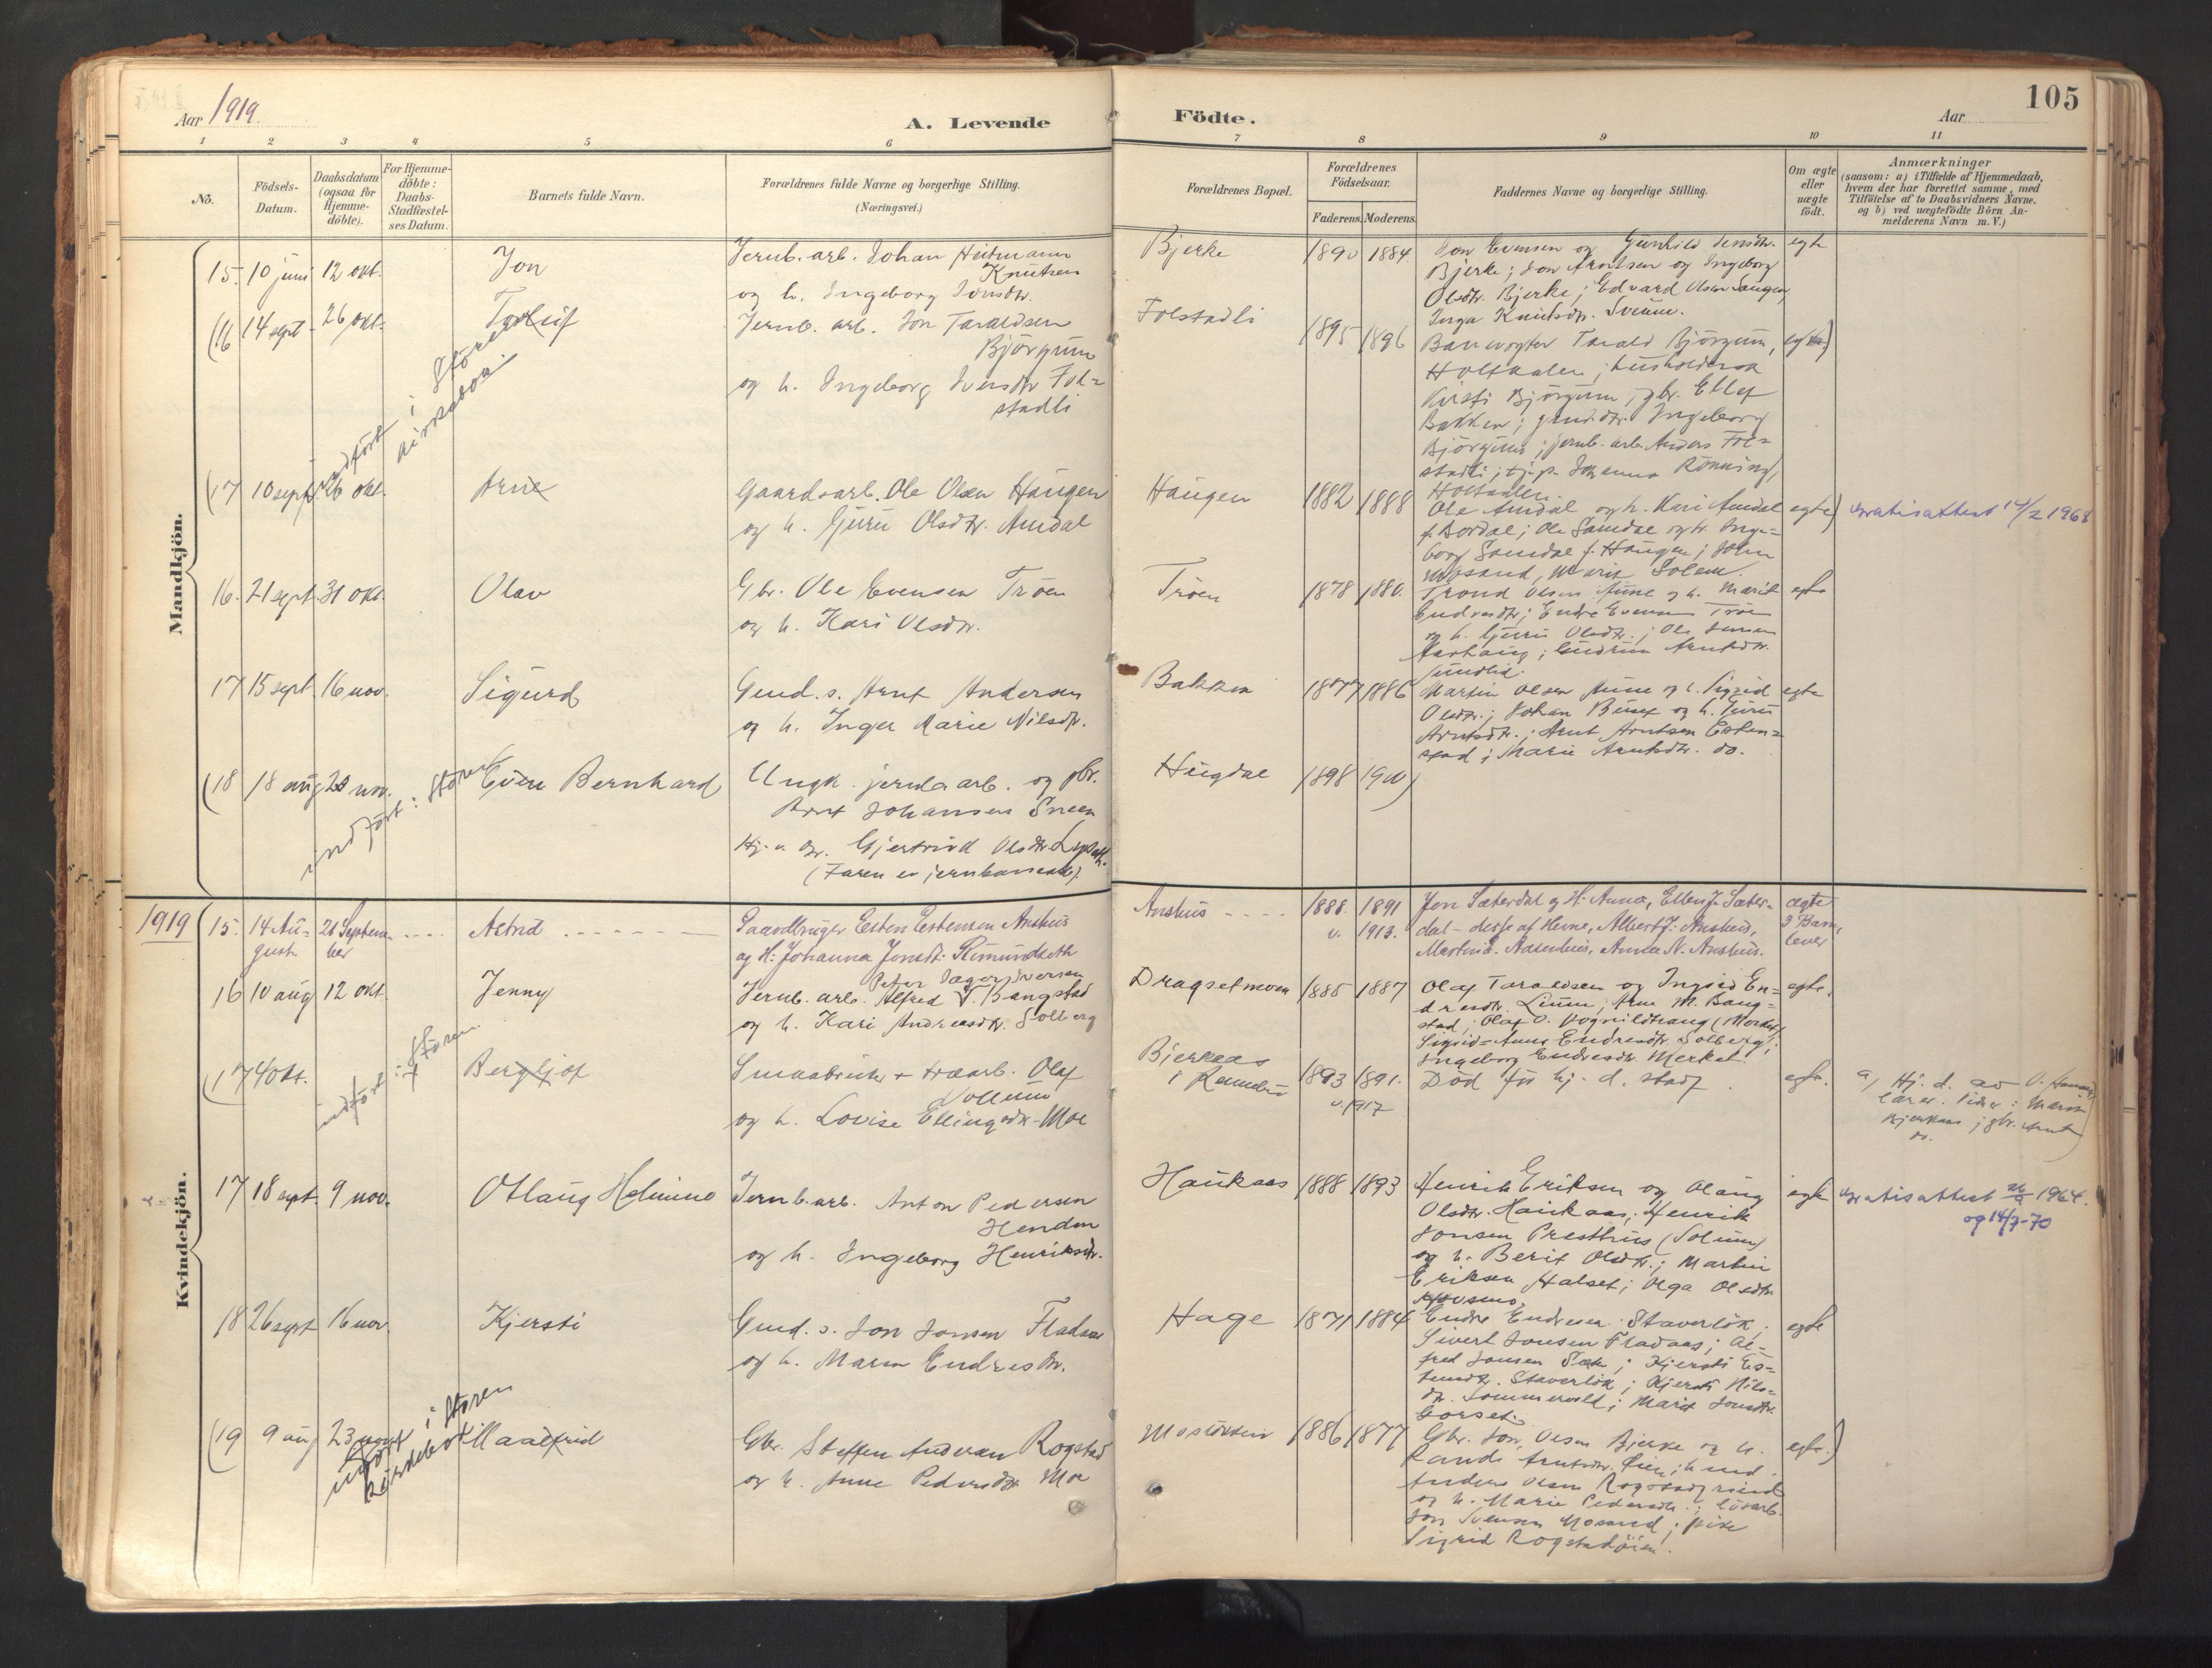 Aar 1919.
A. Levende
Födte.
Aar
105
1 2 3 4 5 6 7 8 9 10 11
No.
Födsels-
Datum.
Daabsdatum
(ogsaa for
Hjemme-
döbte).
For Hjemme-
döbte:
Daabs-
Stadfæstel-
ses Datum.
Barnets fulde Navn.
Forældrenes fulde Navne og borgerlige Stilling.
(Næringsvei.)
Forældrenes Bopæl.
Forældrenes
Födselsaar.
Faderens. Moderens.
Faddernes Navne og borgerlige Stilling.
Om ægte
eller
uægte
födt.
Anmærkninger
(saasom: a) i Tilfælde af Hjemmedaab,
hvem der har forrettet samme, med
Tilföielse af to Daabsvidners Navne.
og b) ved uægtefödte Börn An-
melderens Navn m. V.)
Mandkjön.
15. 10 juni 12 okt. Jon
Jernb. arb. Johan Heitmann
Knutsen
og h. Ingeborg Jonsdtr.
Bjerke 1890 1884
Jon Evensen og Gunhild Jensdtr.
Bjerke; Jon Arntsen og Ingeborg
Olsdtr. Bjerke; Edvard Olsen Haugen,
Inga Knutsdtr. Svium.
egte
(16 14 sept. 26 okt. Torleif
indfört i Stören
kirkebok
Jernb. arb. Jon Taraldsen
Björgum
og h. Ingeborg Iversdtr Fol=
stadli
Folstadli 1895 1896
Banevogter Tarald Björgum,
Holtaalen; husholdersk
Kirsti Björgum; gbr. Ellef
Bakken; gmd.dtr. Ingeborg
Björgum; jernb. arb. Anders Fol=
stadli; tj.p. Johanna Rönning,
Holtaalen.
egte)
(17 10 sept. 26 okt. Arne
Gaardsarb. Ole Olsen Haugen
og h. Guru Olsdtr. Amdal
Haugen 1882 1888
Ole Amdal og h. Kari Amdal
f. Dordal; Ole Samdal og h. Inge=
borg Samdal f. Haugen; John
Mosand, Marit Solem.
egte)
Gratisattest 14/2 1968
16. 21 sept. 31 okt. Olav
Gbr. Ole Evensen Tröen
og h. Kari Olsdtr.
Tröen 1878 1880.
Trond Olsen Aune og h. Marit
Endresdtr; Endre Evensen Tröen
og h. Guru Olsdtr.; Ole Jensen
Aarhaug; Gudrun Arntsdtr.
Sundlid.
egte
17 15 sept. 16 nov. Sigurd
Gmd. s. Arnt Andersen
og h. Inger Marie Nilsdtr.
Bakken 1877 1886
Martin Olsen Aune og h. Sigrid
Olsdtr.; Johan Buset og h. Guru
Arntsdtr.; Arnt Arntsen Esten=
stad; Marie Arntsdtr. do.
egte
(18 18 aug 23 nov. Even Bernhard
indfört i Stören
Ungk. jernb.arb. og gbr.
Arnt Johansen Sneen
Pj. v. Gjertrud Olsdtr.
(Faren er jernbanearb.).
Hugdal 1898 1900)
1919
Kvindekjön.
15. 14 Au-
gust 21 Septem-
ber Astrid
Gaardbruger Esten Estensen Anshus
og H: Johanna Jonsdt. Rimundseth
Anshus 1888. 1891
v. 1913.
Jon Sæterdal og H: Anna, Ellen J. Sæter-
dal - disse af Hevne, Albert J. Anshus,
Martin E. Aasenhus, Anna N. Anshus.
ægte
3 Barn
lever
16 10 aug 12 okt. Jenny
Peter Jæger Iversen
Jernb. arb. Alfred P. Bangstad
og h. Kari Andreasdtr. Solberg
Dragsetmoen 1885 1887
Olaf Taraldsen og Ingrid En=
dresdtr. Lium; Arne M. Bang=
stad; Olaf O. Vognildhaug (Merket)
Sigrid=Anna Endresdtr. Solberg;
Ingeborg Endresdtr. Merket.
egte.
(17 4 okt. Bergljot
indfört i Stören
Smaabruker + træarb. Olaf
Vollum
og h. Lovise Ellingsdtr. Moe
Bjerkaas
i Rennebu 1893 1891.
v. 1917
Död för hj. d. stadf.
egte.
a) Hj. d. av O.
lærer. Vidner: Marit
Bjerkaas; gbr. Arnt
do.
17 18 sept. 9 nov. Otlaug Helmine
Jernb.arb. Anton Pedersen
Henden
og h. Ingeborg Henriksdtr.
Haukaas 1888 1893
Henrik Eriksen og Olaug
Olsdtr. Haukaas; Henrik
Jonsen Presthus (Solum)
og h. Berit Olsdtr.; Martin
Eriksen Halset; Olga Olsdtr
egte
Gratisattest 26/9 1964.
og 14/7-70
18 26 sept 16 nov. Kjersti
Gmd. s. Jon Jonsen Fladaas
og h. Maren Endresdtr.
Hage 1871 1884
Endre Endresen Staverlök,
Sivert Jonsen Fladaas; Al=
fred Jonsen Sæt; Kjersti Es=
tensdtr. Staverlök; Kjersti Nils=
dtr. Sommervold; Marit Jonsdtr.
Gorset.
egte
(19 9 aug 23 nov. Maalfrid
indfört i Stören
kirkebok
Gbr. Steffen Andersen Rogstad
og h. Anne Pedersdtr Moe
1886 1877
Gbr. Jon Olsen Bjerke og h.
Randi Arntsdtr. Lien; kmd.
Anders Olsen Rogstad
og h. Marie Pedersdtr.; lösarb.
Jon Svensen Mosand; pike
Sigrid Rogstadöien.
egte.)